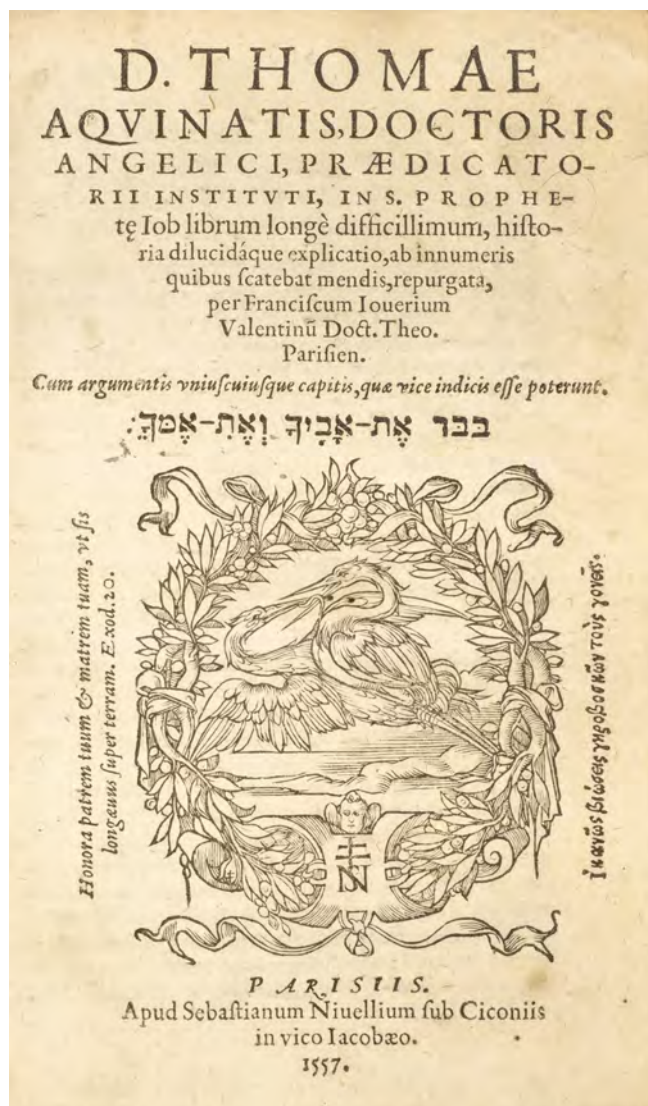 D. THOMAE
AQVINATIS, DOCTORIS
ANGELICI, PRÆDICATO-
RII INSTITVTI, IN S. PROPHE-
tę Iob librum longè difficillimum, histo-
ria dilucidáque explicatio, ab innumeris
quibus scatebat mendis, repurgata,
per Franciscum Iouerium
Valentinū Doct. Theo.
Parisien.
Cum argumentis vniuscuiusque capitis, quæ vice indicis esse poterunt.
כבד אֶת־אָבִיךָ וְאֶת־אִמֶּךָ׃
Honora patrem tuum & matrem tuam, vt sis
longæuus super terram. Exod. 20.
ἱκανῶς βιώσεις γηροβοσκῶν τοὺς γονεῖς.
SN
PARISIIS.
Apud Sebastianum Niuellium sub Ciconiis
in vico Iacobæo.
1557.